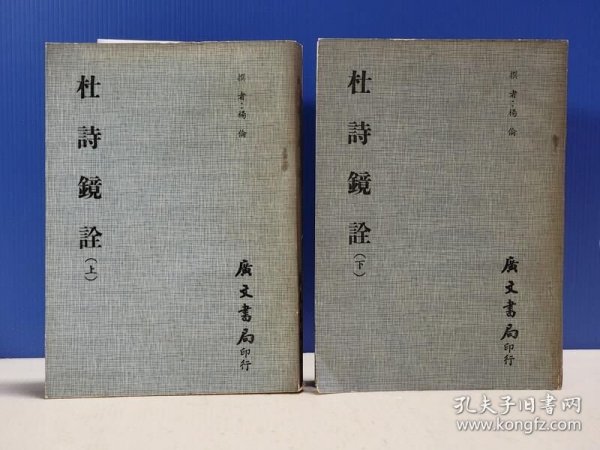 杜詩鏡詮(上)
撰者：楊倫
廣文書局印行
杜詩鏡詮(下)
撰者：楊倫
廣文書局印行
孔夫子旧书网
www.kongfz.com